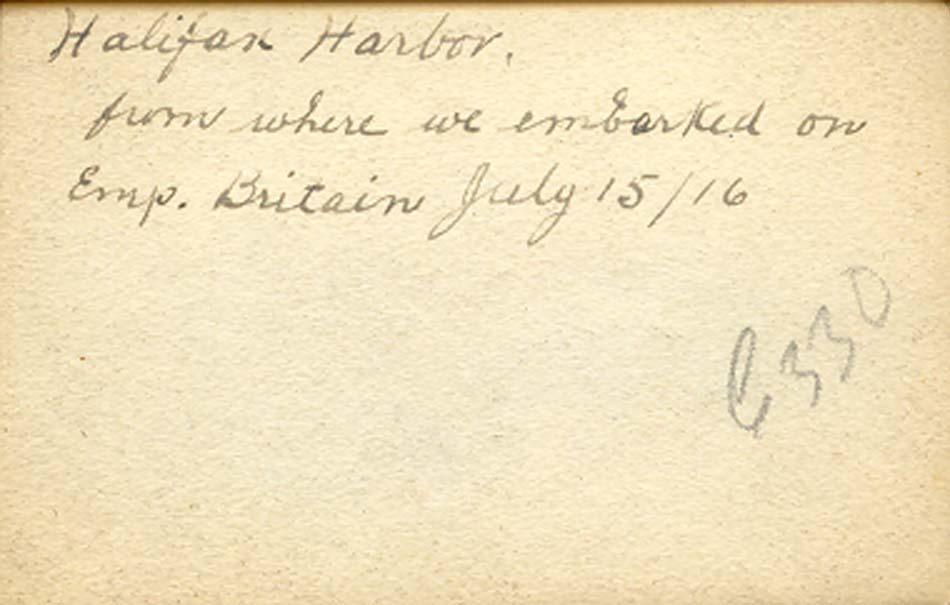 Halifax Harbor.
from where we embarked on
Emp. Britain July 15/16
6330